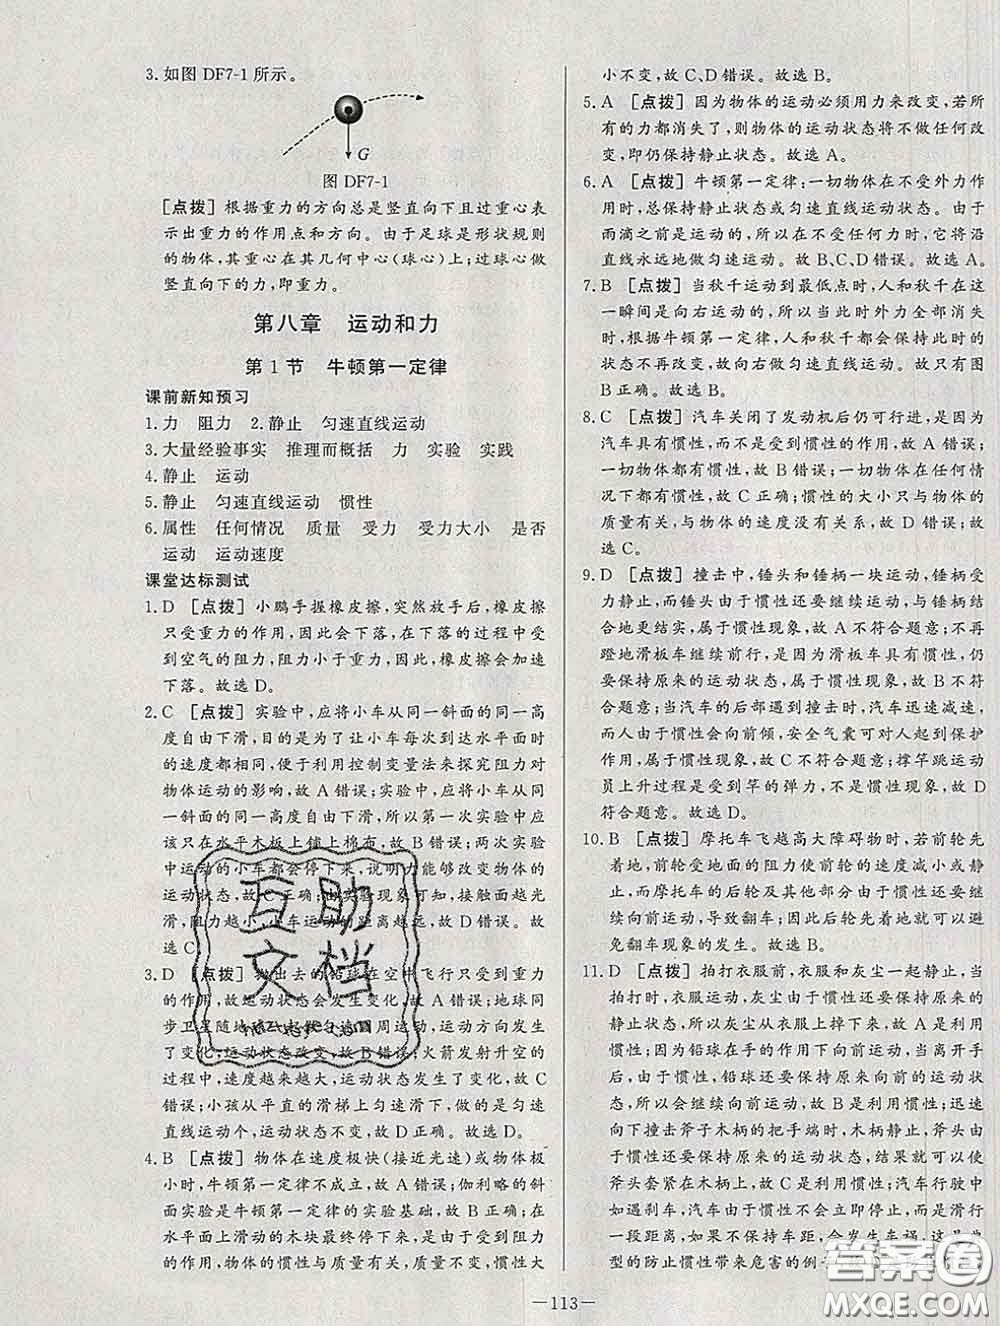 3. 如图 DF7-1 所示。
G
图 DF7-1
［点拨］ 根据重力的方向总是竖直向下且过重心表
示出重力的作用点和方向。由于足球是形状规则
的物体,其重心在其几何中心(球心)上;过球心做
竖直向下的力,即重力。
第八章 运动和力
第 1 节 牛顿第一定律
课前新知预习
1. 力 阻力 2. 静止 匀速直线运动
3. 大量经验事实 推理而概括 力 实验 实践
4. 静止 运动
5. 静止 匀速直线运动 惯性
6. 属性 任何情况 质量 受力 受力大小 是否
运动 运动速度
课堂达标测试
1. D ［点拨］ 小鹏手握橡皮擦,突然放手后,橡皮擦
只受重力的作用,因此会下落,在下落的过程中受
到空气的阻力,阻力小于重力,因此,橡皮擦会加速
下落。故选 D。
2. C ［点拨］ 实验中,应将小车从同一斜面的同一高
度自由下滑,目的是为了让小车每次到达水平面时
的速度都相同,便于利用控制变量法来探究阻力对
物体运动的影响,故 A 错误;实验中,应将小车从同
一斜面的同一高度自由下滑,所以第一次实验中应
该只在水平木板上铺上棉布,故 B 错误;两次实验
中运动的小车都会停下来,说明力能够改变物体的
运动状态,故 C 正确;从实验现象可知,接触面越光
滑,阻力越小,小车运动的距离越远,故 D 错误。故
选 C
3. D ［点拨］ 抛出去的铅球在空中飞行只受到重力
的作用,故运动状态会发生变化,故 A 错误;地球同
步卫星随地球一起做匀速圆周运动,运动方向发生
了变化,运动状态改变,故 B 错误;火箭发射升空的
过程中,速度越来越大,运动状态发生了变化,故 C
错误;小孩从平直的滑梯上匀速滑下,做的是匀速
直线运动,运动状态不变,故 D 正确。故选 D。
4. B ［点拨］ 物体在速度极快(接近光速)或物体极
小时,牛顿第一定律不成立,故 A 错误;伽利略的斜
面实验是牛顿第一定律的实验基础,故 B 正确;在
水平面上滑动的木块最终停下,是由于受到阻力的
作用,物体的惯性与质量有关,质量不变,惯性大
小不变,故 C、D 错误。故选 B。
5. A ［点拨］ 因为物体的运动必须用力来改变,若所
有的力都消失了,则物体的运动状态将不做任何改
变,即仍保持静止状态。故选 A。
6. A ［点拨］ 牛顿第一定律:一切物体在不受外力作
用时,总保持静止状态或匀速直线运动状态。由于
雨滴之前是运动的,所以在不受任何力时,它将沿
直线永远地做匀速运动。故 B、C、D 错误。故选 A。
7. B ［点拨］ 当秋千运动到最低点时,人和秋千在这
一瞬间是向右运动的,所以当此时外力全部消失
时,根据牛顿第一定律,人和秋千都会保持此时的
状态不再改变,故向右做匀速直线运动。故只有图
B 正确。故选 B。
8. C ［点拨］ 汽车关闭了发动机后仍可行进,是因为
汽车具有惯性,而不是受到惯性的作用,故 A 错误;
一切物体都有惯性,故 B 错误;一切物体在任何情
况下都有惯性,故 C 正确;惯性的大小只与物体的
质量有关,与物体的速度没有关系,故 D 错误;故
选 C。
9. D ［点拨］ 撞击中,锤头和锤柄一块运动,锤柄受
力静止,而锤头由于惯性还要继续运动,与锤柄结
合地更结实,属于惯性现象,故 A 不符合题意;不再
蹬地滑板车继续前行,是由于滑板车具有惯性,仍
要保持原来的运动状态,属于惯性现象,故 B 不符
合题意;当汽车的后部受到撞击时,汽车迅速减速,
而人由于惯性会向前倾,安全气囊可对人起到保护
作用,属于惯性现象,故 C 不符合题意;撑竿跳运动
员上升过程是受到竿的弹力,不是惯性现象,故 D
符合题意。故选 D。
10. B ［点拨］ 摩托车飞越高大障碍物时,若前轮先
着地,前轮受地面的阻力使前轮的速度减小或静
止,而摩托车的后轮及其他部分由于惯性还要继
续向前运动,导致翻车;所以后轮先着地就可以避
免翻车现象的发生。故选 B。
11. D ［点拨］ 拍打衣服前,衣服和灰尘一起静止,当
拍打时,衣服运动,灰尘由于惯性还保持原来的
静止状态,所以灰尘从衣服上掉下来,故 A 是利用
惯性;因为铅球在手的作用下向前运动,当离开手
后,由于惯性,铅球还要保持原来向前的运动状
态,所以铅球能继续向前运动,故 B 是利用惯性;迅速
向下撞击斧子木柄的把手端时,木柄静止,斧头由于
惯性还要保持原来的运动状态,结果就可以使
斧头套紧在木柄上,故 C 是利用惯性;汽车行驶中
如遇刹车,汽车由于惯性不会立即静止,而是滑行
一段距离,如果不保持车距,会发生车祸,这是典
型的防止惯性带来危害的例子
互助
文档
答案圈
MXQE.COM
—113—